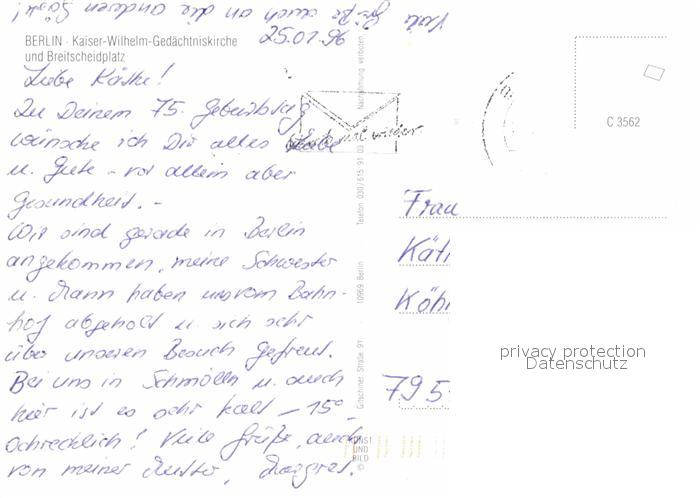 Viele Grüße auch an die anderen Gäste!
25.01.96
BERLIN · Kaiser-Wilhelm-Gedächtniskirche
und Breitscheidplatz
Liebe Käthe!
Zu Deinem 75. Geburtstag
wünsche ich Dir alles Liebe
u. Gute - vor allem aber
Gesundheit. -
Wir sind gerade in Berlin
angekommen, meine Schwester
u. Mann haben uns vom Bahn-
hof abgeholt u. sich sehr
über unseren Besuch gefreut.
Bei uns in Schmölln u. auch
hier ist es sehr kalt - 15°
schrecklich! Viele Grüße, auch
von meiner Mutter, Margret.
mal wieder.
Nachnahmung verboten
Telefon 030/615 91 03
10969 Berlin
Gitschiner Straße 91
KUNST
UND
BILD
©
C 3562
Frau
Kät
Köh
795
privacy protection
Datenschutz